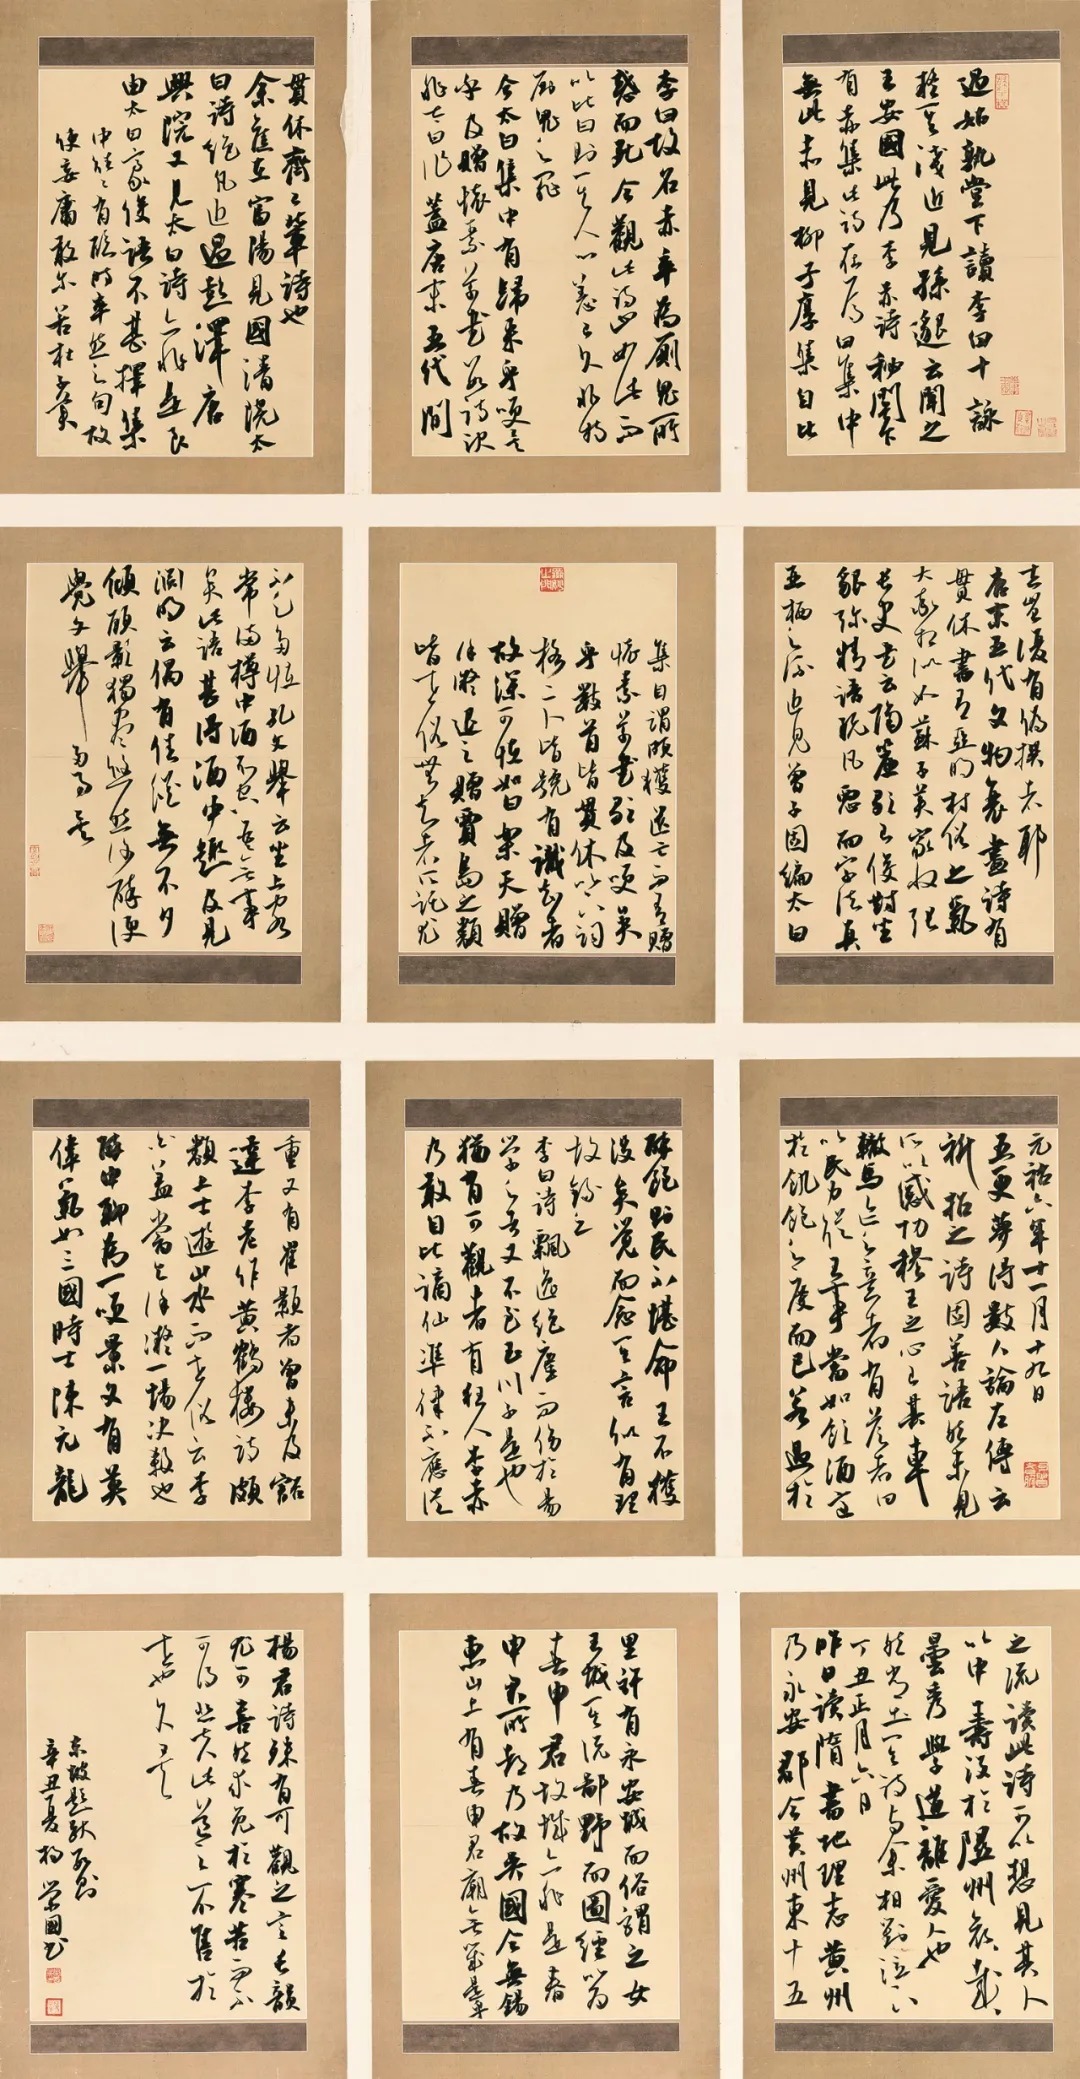 過姑孰堂下讀李白十詠
疑其淺近見孫邈云聞之
王安國此乃李赤詩秘閣下
有赤集此詩在焉白集中
無此赤見柳子厚集自比
李白故名赤卒為厠鬼所
惑而死今觀此詩止如此而
以比白則其人心恙已久非特
厠鬼之罪
今太白集中有歸來乎笑矣
乎及贈懷素草書數詩決
非太白作蓋唐末五代間
貫休齊己輩詩也
余舊在富陽見國清院太
白詩絕凡近過彭澤唐
興院又見太白詩亦非是良
由太白豪俊語不甚擇集
中往往有臨時率然之句故
使妄庸敢爾若杜子美
世豈復有偽撰者耶
唐末五代文物衰盡詩有
貫休書有亞栖村俗之氣
大率相似如蘇子美家收張
長史書云隔簾歌已俊對坐
貌彌精語既凡惡而字法真
亞栖之流近見曾子固編太白
集自謂頗獲遺亡而有贈
懷素草書歌及笑矣
乎數首皆貫休以下詞
格二人皆號有識知者
故深可怪如白樂天贈
徐凝退之贈賈島之類
皆世俗無知者所託尤
不足多怪孔文舉云坐上客
常滿樽中酒不空吾無事
矣此語甚得酒中趣及見
淵明云偶有佳酒無不夕
傾顧影獨盡悠然復醉便
覺文舉多事矣
元祐六年十一月十九日
五更夢得數人論左傳云
祈招之詩固善語然未見
所以感切穆王之心已其車
轍馬迹之意者有答者曰
以民力從王事當如飲酒適
於飢飽之度而已若過於
醉飽則民不堪命王不獲
沒矣覺而念其言似有理
故錄之
李白詩飄逸絕塵而傷於易
學之者又不至玉川子是也
猶有可觀者有狂人李赤
乃敢自比謫仙準律不應從
重又有崔顥者曾未及豁
達李老作黃鶴樓詩頗
類上士遊山水而世俗云李
白蓋當與徐凝一場決殺也
醉中聊為一笑景文有英
偉氣如三國時士陳元龍
之流讀此詩可以想見其人
以中壽沒於隰州哀哉
曇秀學道離愛人也
然常出其詩與余相對泣下
丁丑正月六日
昨日讀隋書地理志黃州
乃永安郡今黃州東十五
里許有永安城而俗謂之女
王城其說鄙野而圖經以為
春申君故城亦非是春
申君所都乃故吳國今無錫
惠山上有春申君廟庶幾是乎
楊君詩殊有可觀之言長韻
尤可喜然求免於寒苦而不
可得悲夫此道之不售於
世也久矣
東坡題跋數則
辛丑夏楊榮國書